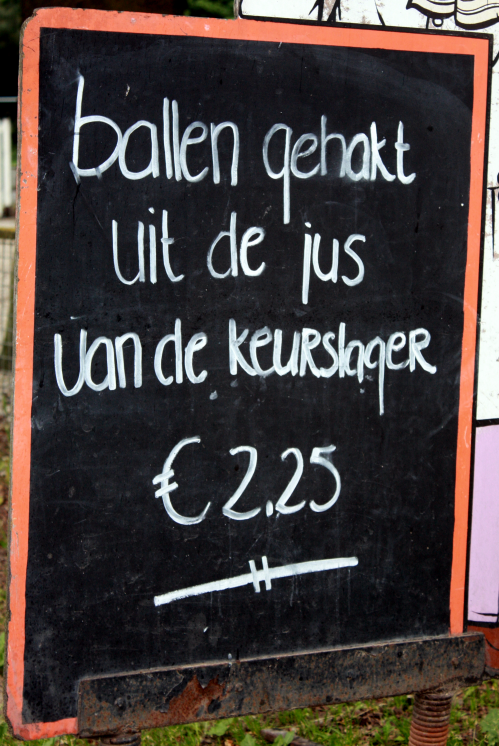 ballen gehakt
uit de jus
van de keurslager
€ 2.25